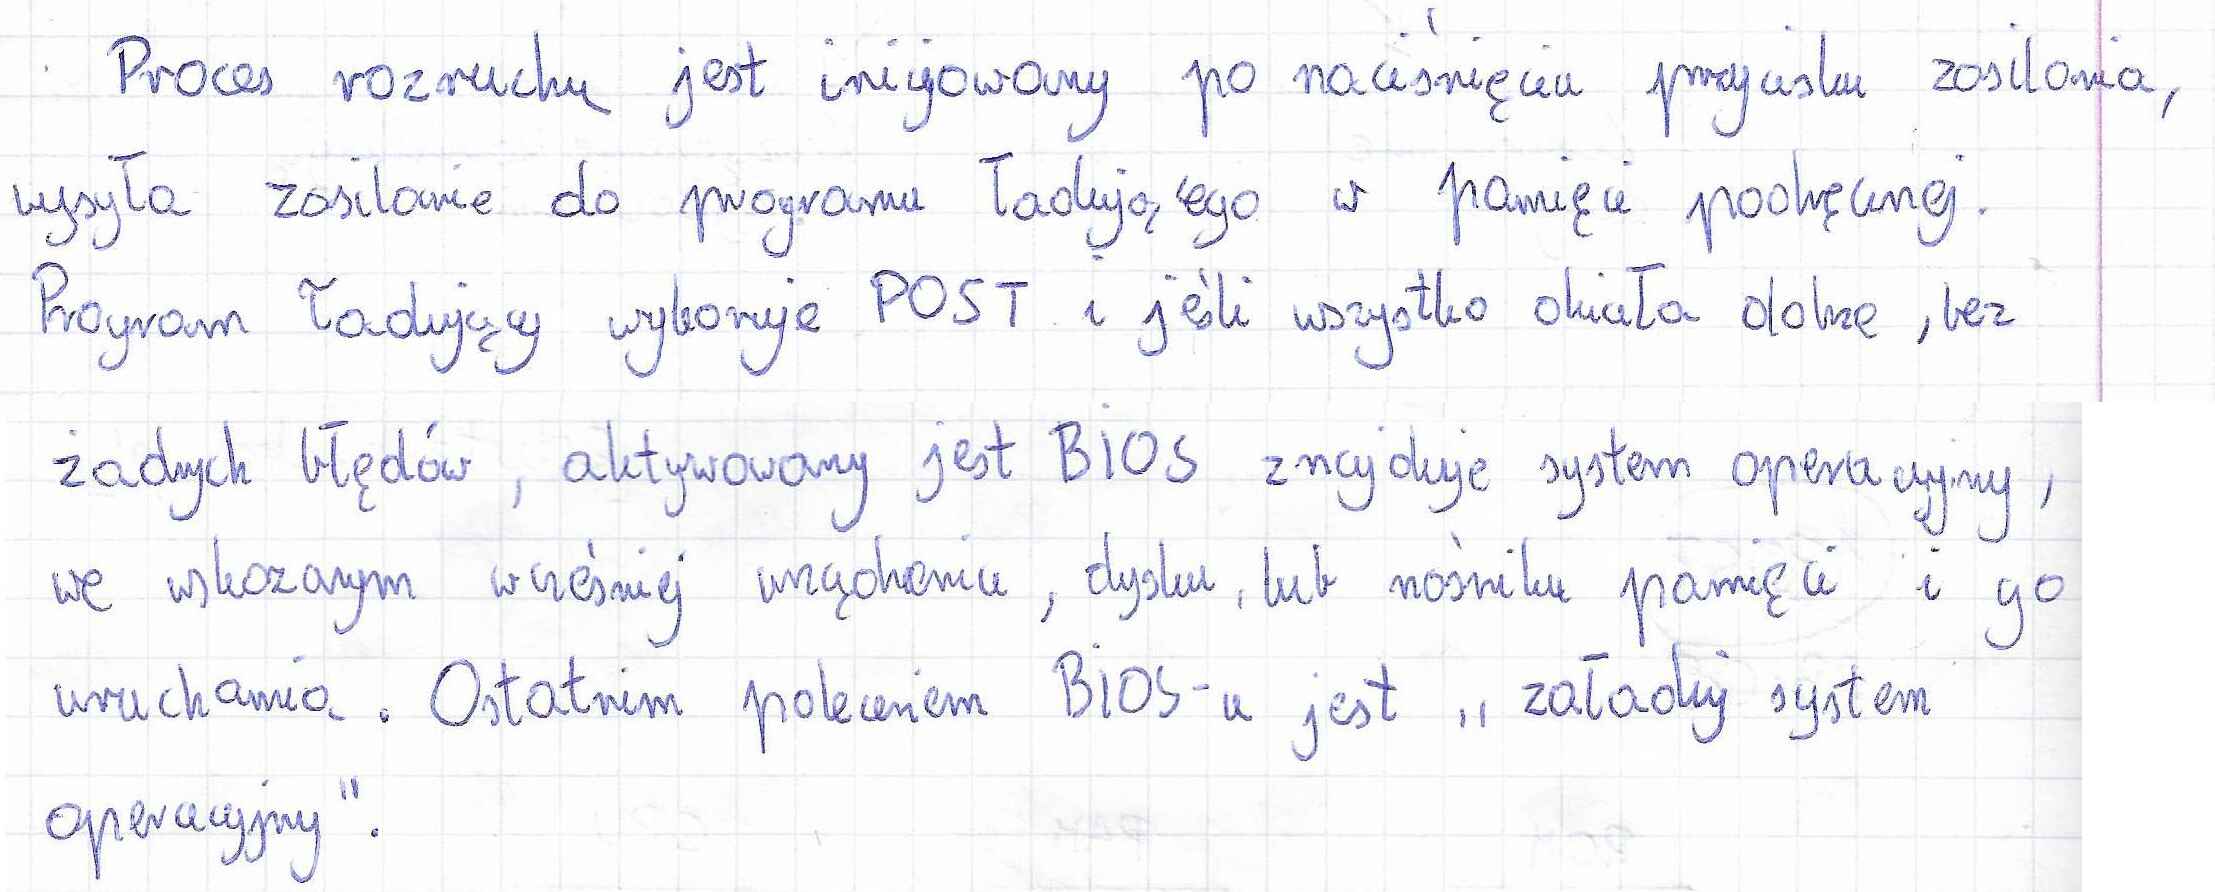 Proces rozruchu jest inicjowany po naciśnięciu przycisku zasilania,
wysyła zasilanie do programu ładującego w pamięci podręcznej.
Program ładujący wykonuje POST i jeśli wszystko działa dobrze, bez
żadnych błędów, aktywowany jest BIOS znajduje system operacyjny,
we wskazanym wcześniej urządzeniu, dysku, lub nośniku pamięci i go
uruchamia. Ostatnim poleceniem BIOS-u jest „załaduj system
operacyjny".